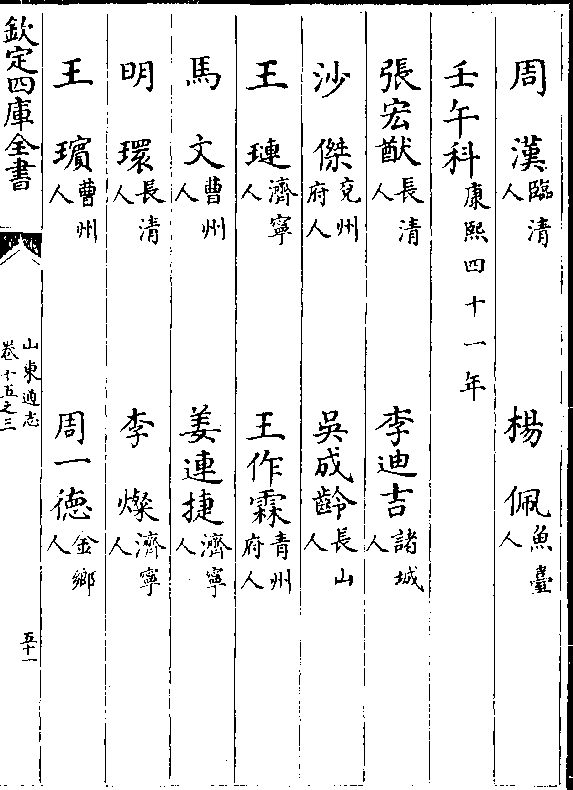 周漢臨清人　楊佩魚臺人
壬午科康熙四十一年
張宏猷長清人　李迪吉諸城人
沙傑兖州府人　吳成齡長山人
王璉濟寧人　王作霖青州府人
馬文曹州人　姜連捷濟寧人
明環長清人　李燦濟寧人
王璸曹州人　周一德金鄉人
欽定四庫全書
山東通志
卷十五之三
五十一